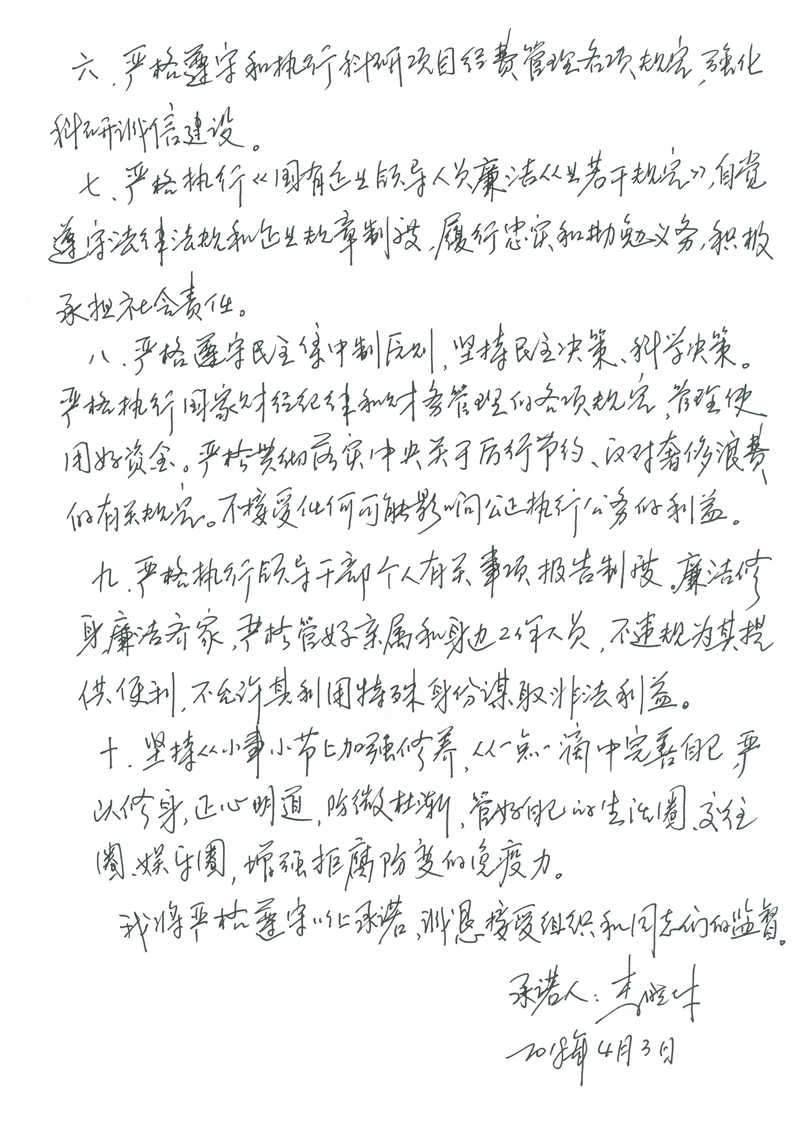 六、严格遵守和执行科研项目经费管理各项规定，强化
科研诚信建设。
七、严格执行《国有企业领导人员廉洁从业若干规定》，自觉
遵守法律法规和企业规章制度，履行忠实和勤勉义务，积极
承担社会责任。
八、严格遵守民主集中制原则，坚持民主决策、科学决策。
严格执行国家财经纪律和财务管理的各项规定，管理使
用好资金。严格贯彻落实中央关于厉行节约、反对奢侈浪费
的有关规定。不接受任何可能影响公正执行公务的利益。
九、严格执行领导干部个人有关事项报告制度。廉洁修
身，廉洁齐家，严格管好亲属和身边工作人员，不违规为其提
供便利，不允许其利用特殊身份谋取非法利益。
十、坚持从小事小节上加强修养，从一点一滴中完善自己，严
以修身，正心明道，防微杜渐，管好自己的生活圈、交往
圈、娱乐圈，增强拒腐防变的免疫力。
我将严格遵守以上承诺，诚恳接受组织和同志们的监督。
承诺人：李
2018年4月3日